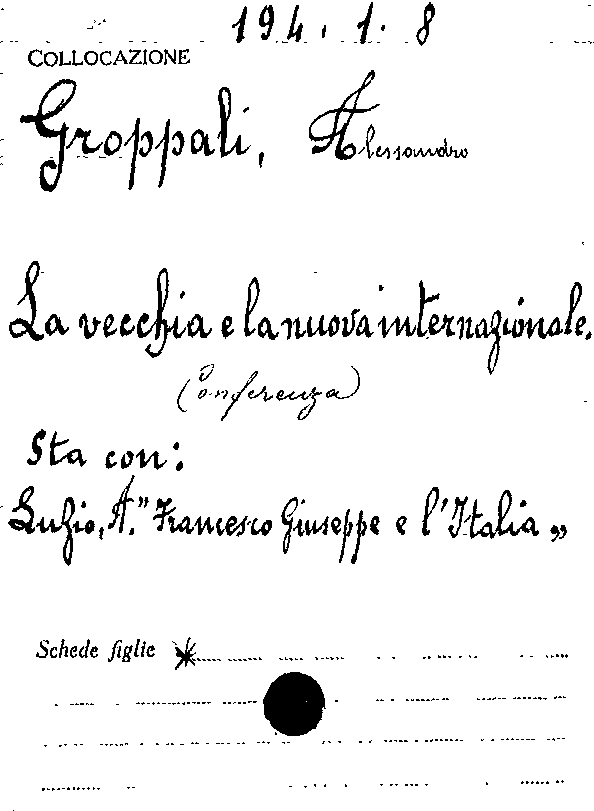 194. 1. 8
COLLOCAZIONE
Groppali, Alessandro
La vecchia e la nuova internazionale.
(Conferenza)
Sta con:
Luzio, A. "Francesco Giuseppe e l'Italia„
Schede figlie